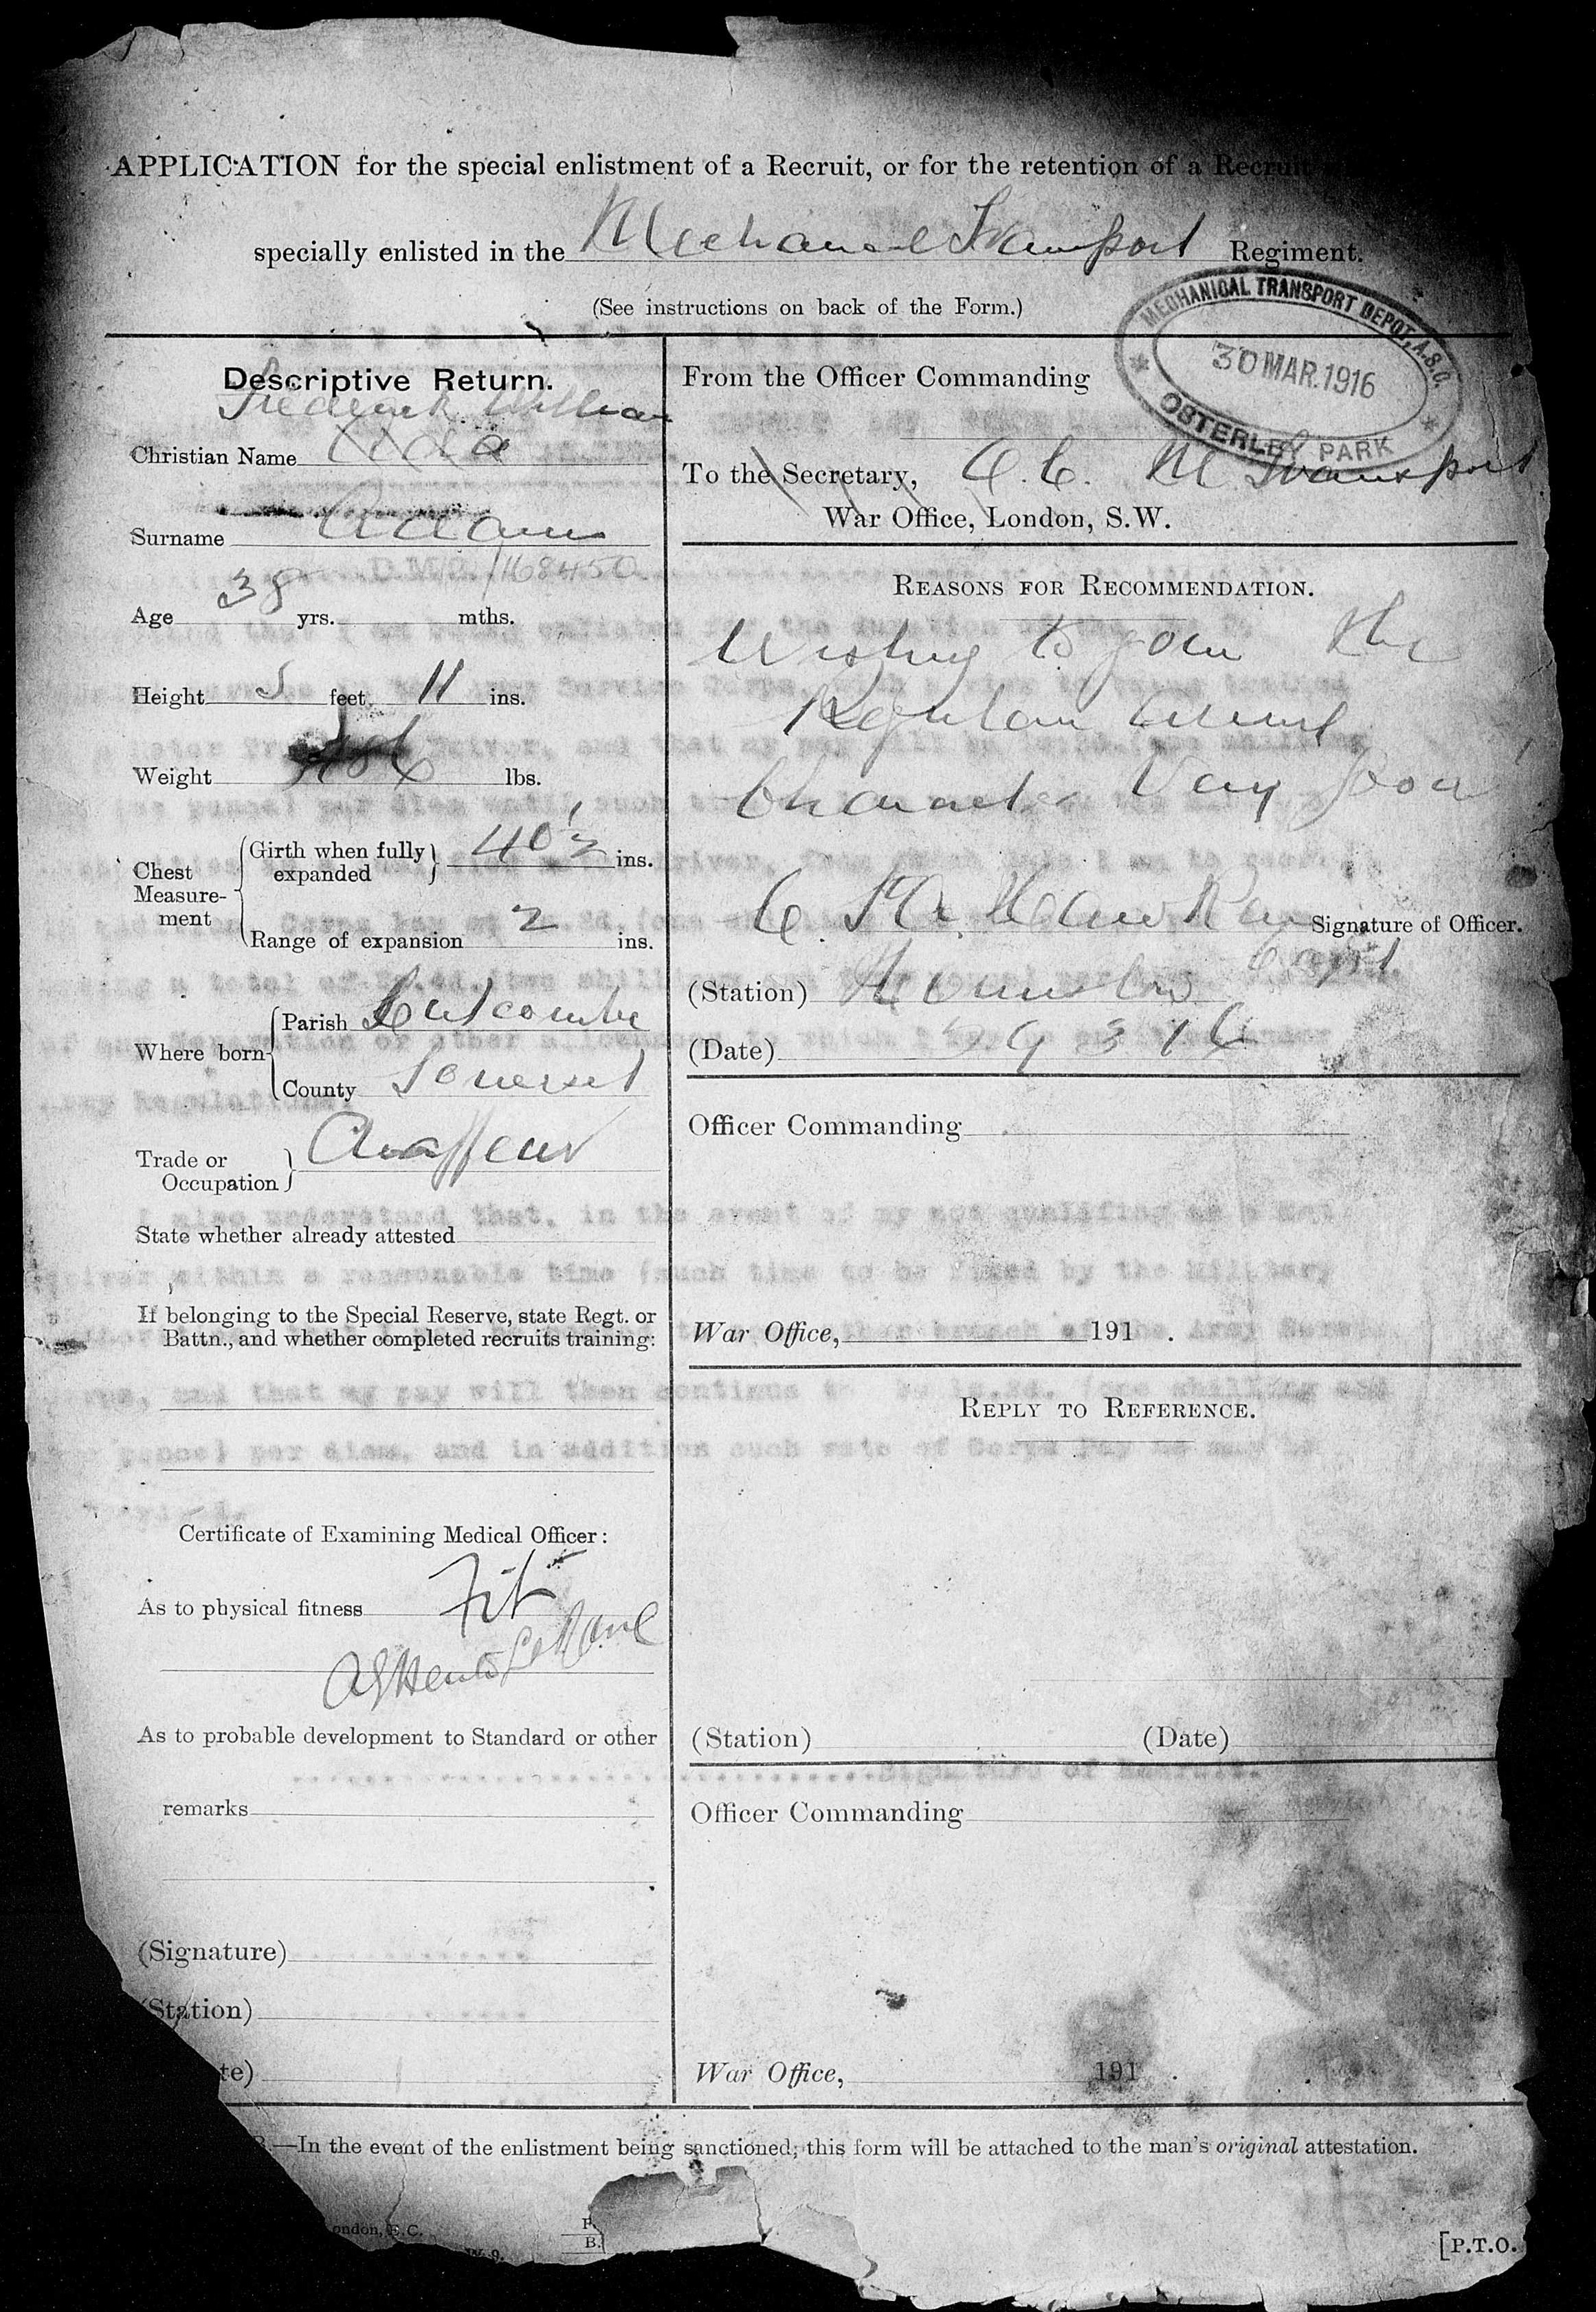 APPLICATION for the special enlistment of a Recruit, or for the retention of a Recruit
specially enlisted in the Mechanical Transport Regiment.
(See instructions on back of the Form.)
MECHANICAL TRANSPORT DEPOT, A.S.C.
30 MAR. 1916
OSTERLEY PARK
Descriptive Return.
Frederick William
Christian Name
Surname Adams
D.M2. /168450
Age 38 yrs. mths.
Height 5 feet 11 ins.
Weight lbs.
Chest Measurement
Girth when fully expanded 40 1/2 ins.
Range of expansion 2 ins.
Where born
Parish Cutcombe
County Somerset
Trade or Occupation Chaffeur
State whether already attested
If belonging to the Special Reserve, state Regt. or
Battn., and whether completed recruits training:
Certificate of Examining Medical Officer:
As to physical fitness Fit
As to probable development to Standard or other
remarks
(Signature)
(Station)
te)
From the Officer Commanding
To the Secretary, O.C. M Transport
War Office, London, S.W.
REASONS FOR RECOMMENDATION.
Wishing to join the
Regular Army
Character Very Good
Signature of Officer.
Capt
(Station) Hounslow
(Date) 29 3 16
Officer Commanding
War Office, 191 .
REPLY TO REFERENCE.
(Station) (Date)
Officer Commanding
War Office, 191 .
B.—In the event of the enlistment being sanctioned, this form will be attached to the man's original attestation.
ondon, E.C.
W. 9.
B.
[P.T.O.